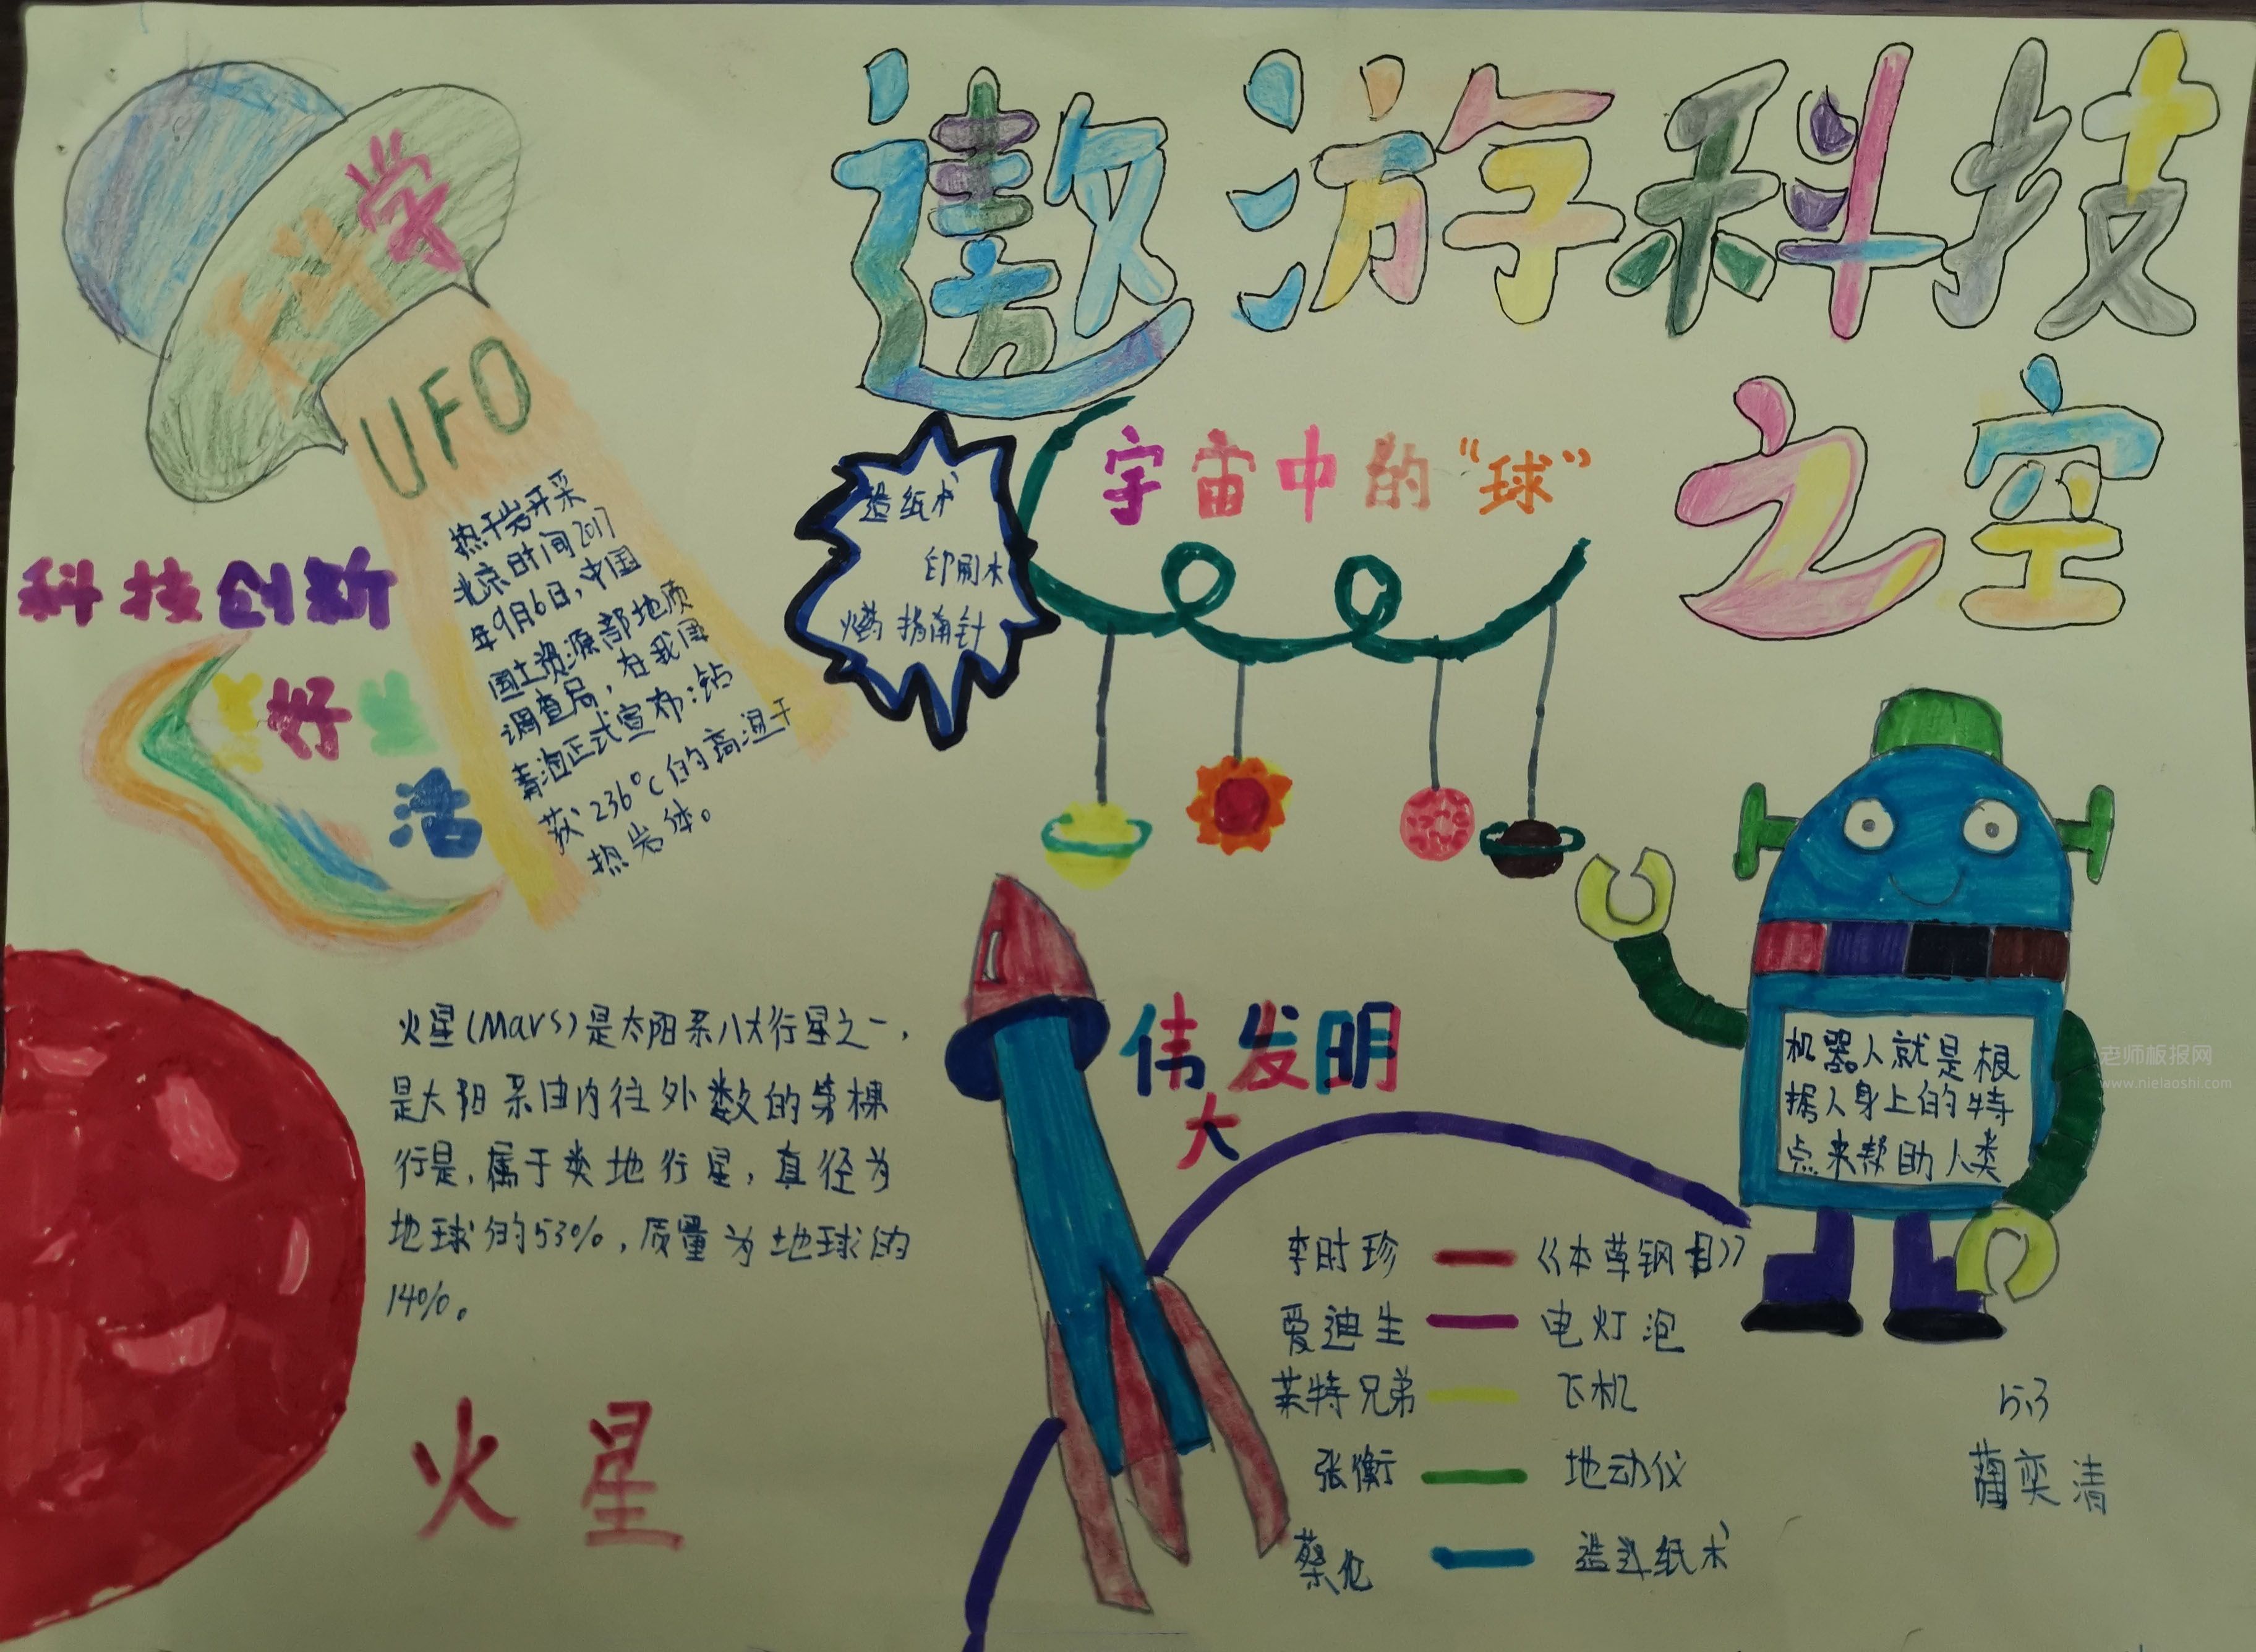 遨游科技
之空
科学
UFO
热干岩开采
北京时间2017
年9月6日,中国
国土资源部地质
调查局,在我国
青海正式宣布:钻
获236°C的高温干
热岩体。
科技创新
科学生
活
造纸术
印刷术
火药 指南针
宇宙中的“球”
火星(Mars)是太阳系八大行星之一,
是太阳系由内往外数的第棵
行是,属于类地行星,直径为
地球的53%,质量为地球的
14%。
火星
伟发明
大
李时珍 — 《本草钢目》
爱迪生 — 电灯泡
莱特兄弟 — 飞机
张衡 — 地动仪
蔡伦 — 造纸术
机器人就是根
据人身上的特
点来帮助人类
老师板报网
www.nielaoshi.com
5.3
奕清